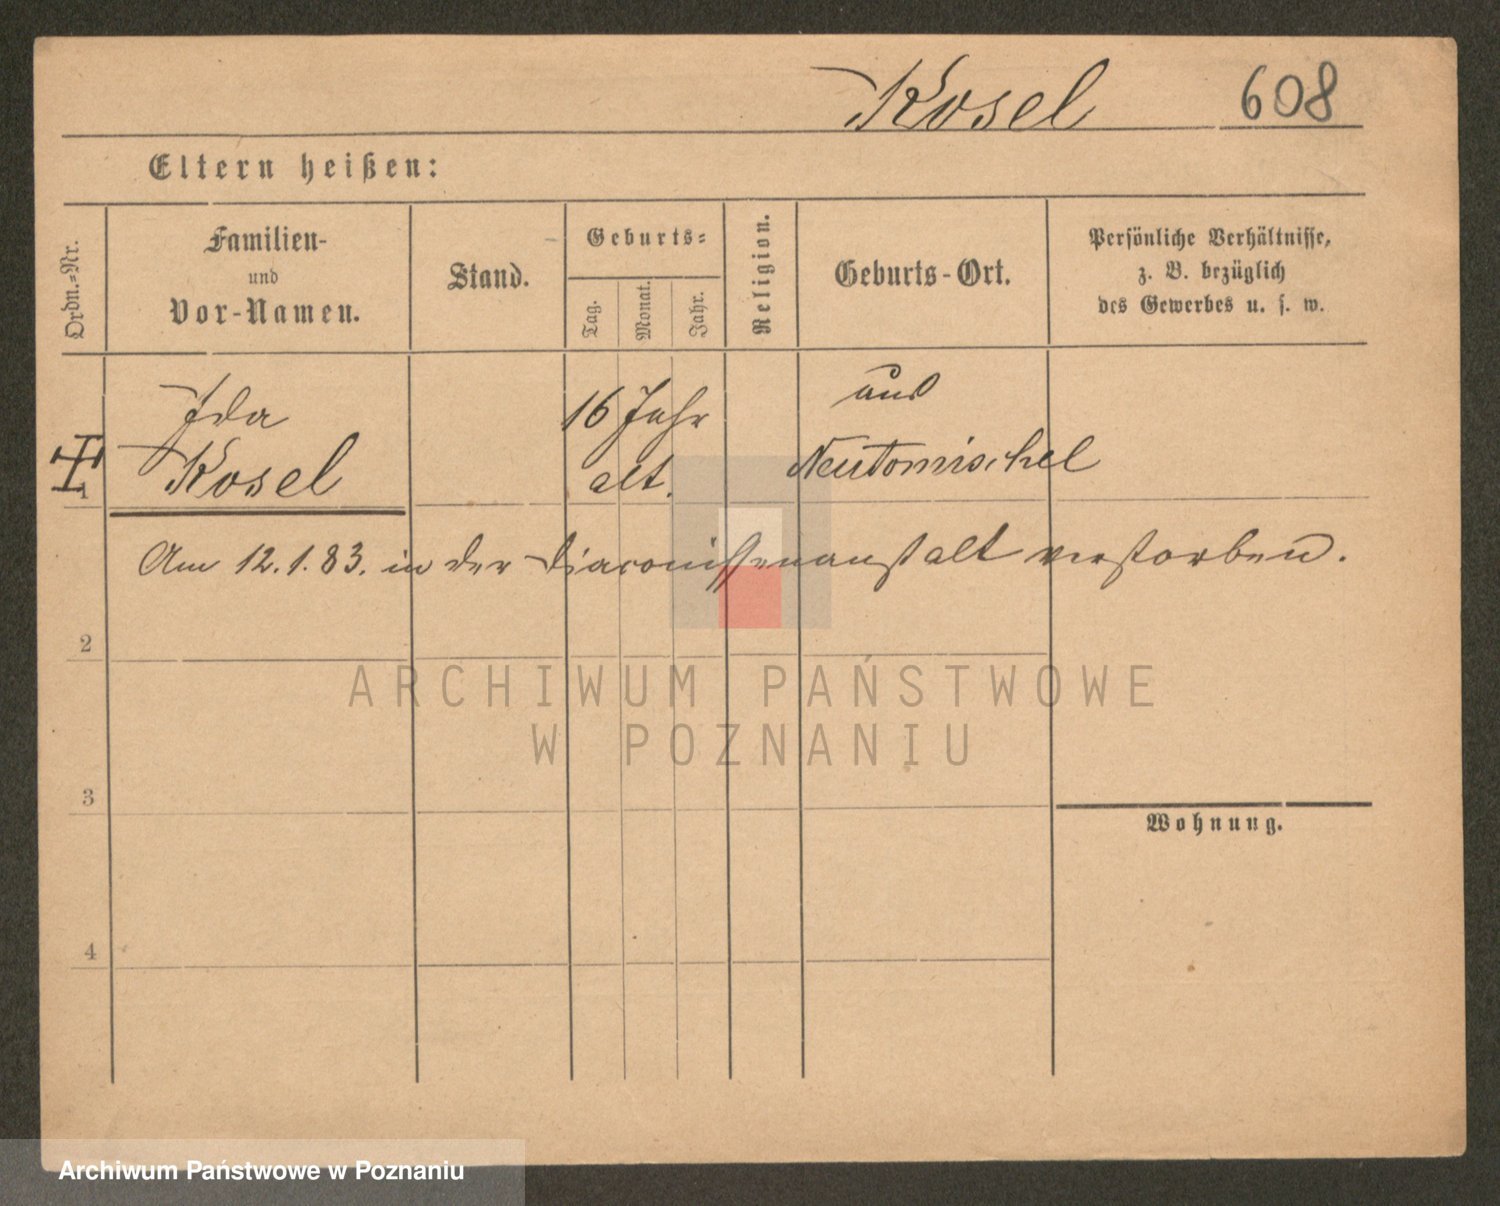 Kosel 608
Eltern heißen:
Ordn.-Nr.
Familien-
und
Vor-Namen.
Stand.
Geburts-
Tag.
Monat.
Jahr.
Religion.
Geburts-Ort.
Persönliche Verhältnisse,
z. B. bezüglich
des Gewerbes u. s. w.
1
Ida
Kosel
16 Jahr
alt.
aus
Neutomischel
Am 12.1.83. in der Diaconissenanstalt verstorben.
2
3
4
Wohnung.
ARCHIWUM PAŃSTWOWE
W POZNANIU
Archiwum Państwowe w Poznaniu